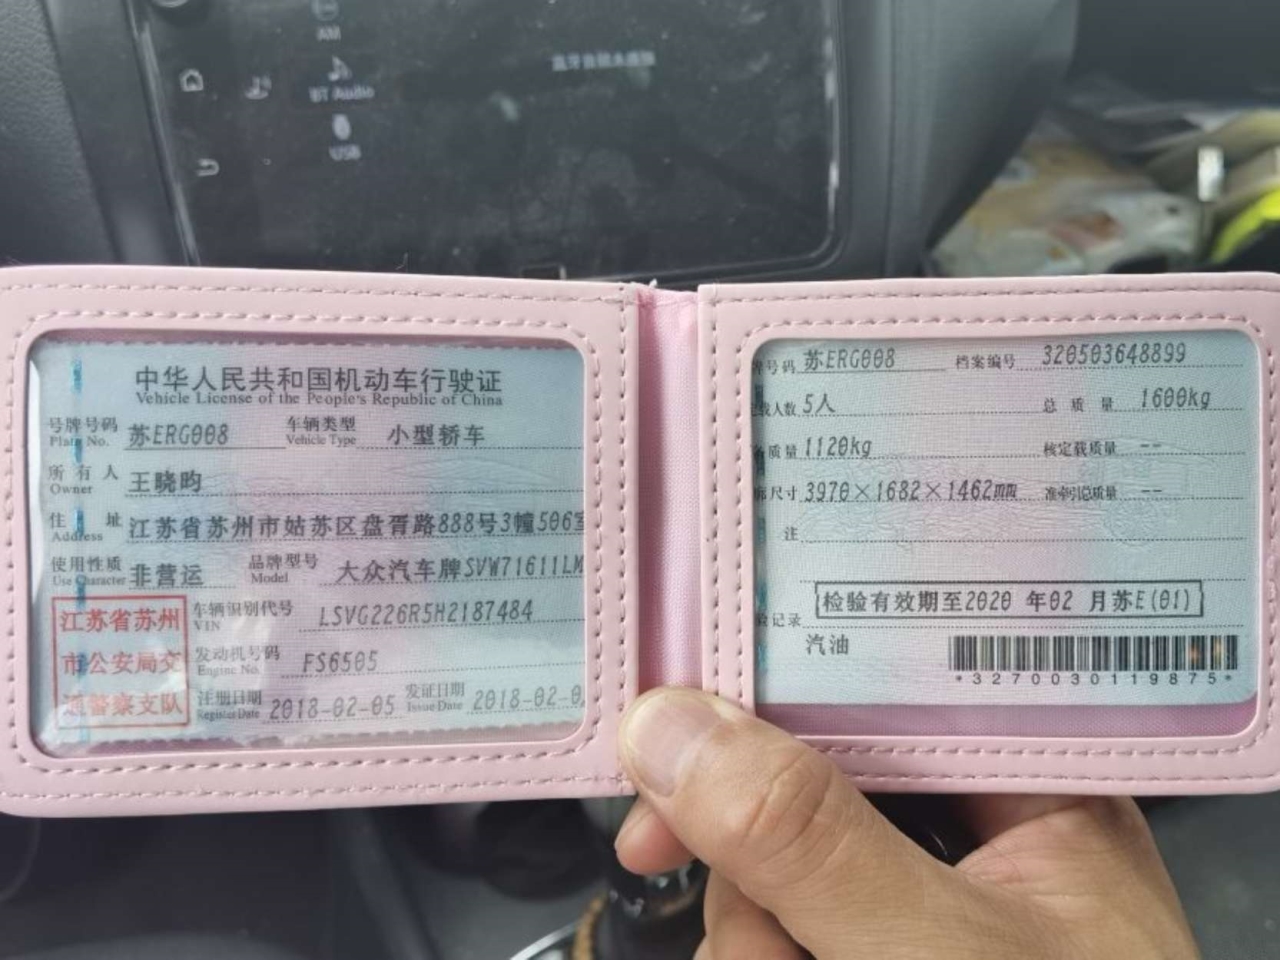 AM
BT Audio
USB
中华人民共和国机动车行驶证
Vehicle License of the People's Republic of China
号牌号码 苏ERG008 车辆类型 小型轿车
Plate No. Vehicle Type
所有人 王晓昀
Owner
住址 江苏省苏州市姑苏区盘胥路888号3幢506室
Address
使用性质 非营运 品牌型号 大众汽车牌SVW71611LM
Use Character Model
江苏省苏州
市公安局交
通警察支队
车辆识别代号 LSVG226R5H2187484
VIN
发动机号码 FS6505
Engine No.
注册日期 2018-02-05 发证日期 2018-02-0
Register Date Issue Date
牌号码 苏ERG008 档案编号 320503648899
载人数 5人 总质量 1600kg
质量 1120kg 核定载质量 --
廓尺寸 3970×1682×1462mm 准牵引总质量 --
注
检验有效期至2020 年02 月苏E(01)
记录
汽油
*3270030119875*